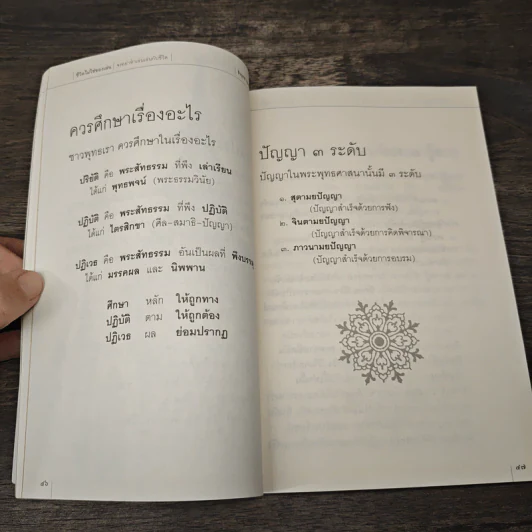 ควรศึกษาเรื่องอะไร
ชาวพุทธเรา ควรศึกษาในเรื่องอะไร
ปริยัติ คือ พระสัทธรรม ที่พึง เล่าเรียน
ได้แก่ พุทธพจน์ (พระธรรมวินัย)
ปฏิบัติ คือ พระสัทธรรม ที่พึง ปฏิบัติ
ได้แก่ ไตรสิกขา (ศีล-สมาธิ-ปัญญา)
ปฏิเวธ คือ พระสัทธรรม อันเป็นผลที่
ได้แก่ มรรคผล และ นิพพาน
ศึกษา หลัก ให้ถูกทาง
ปฏิบัติ ตาม ให้ถูกต้อง
ปฏิเวธ ผล ย่อมปรากฏ
๔๖
ปัญญา ๓ ระดับ
ปัญญาในพระพุทธศาสนานั้นมี ๓ ระดับ
๑. สุตามยปัญญา
(ปัญญาสำเร็จด้วยการฟัง)
๒. จินตามยปัญญา
(ปัญญาสำเร็จด้วยการคิดพิจารณา)
๓. ภาวนามยปัญญา
(ปัญญาสำเร็จด้วยการอบรม)
๔๗